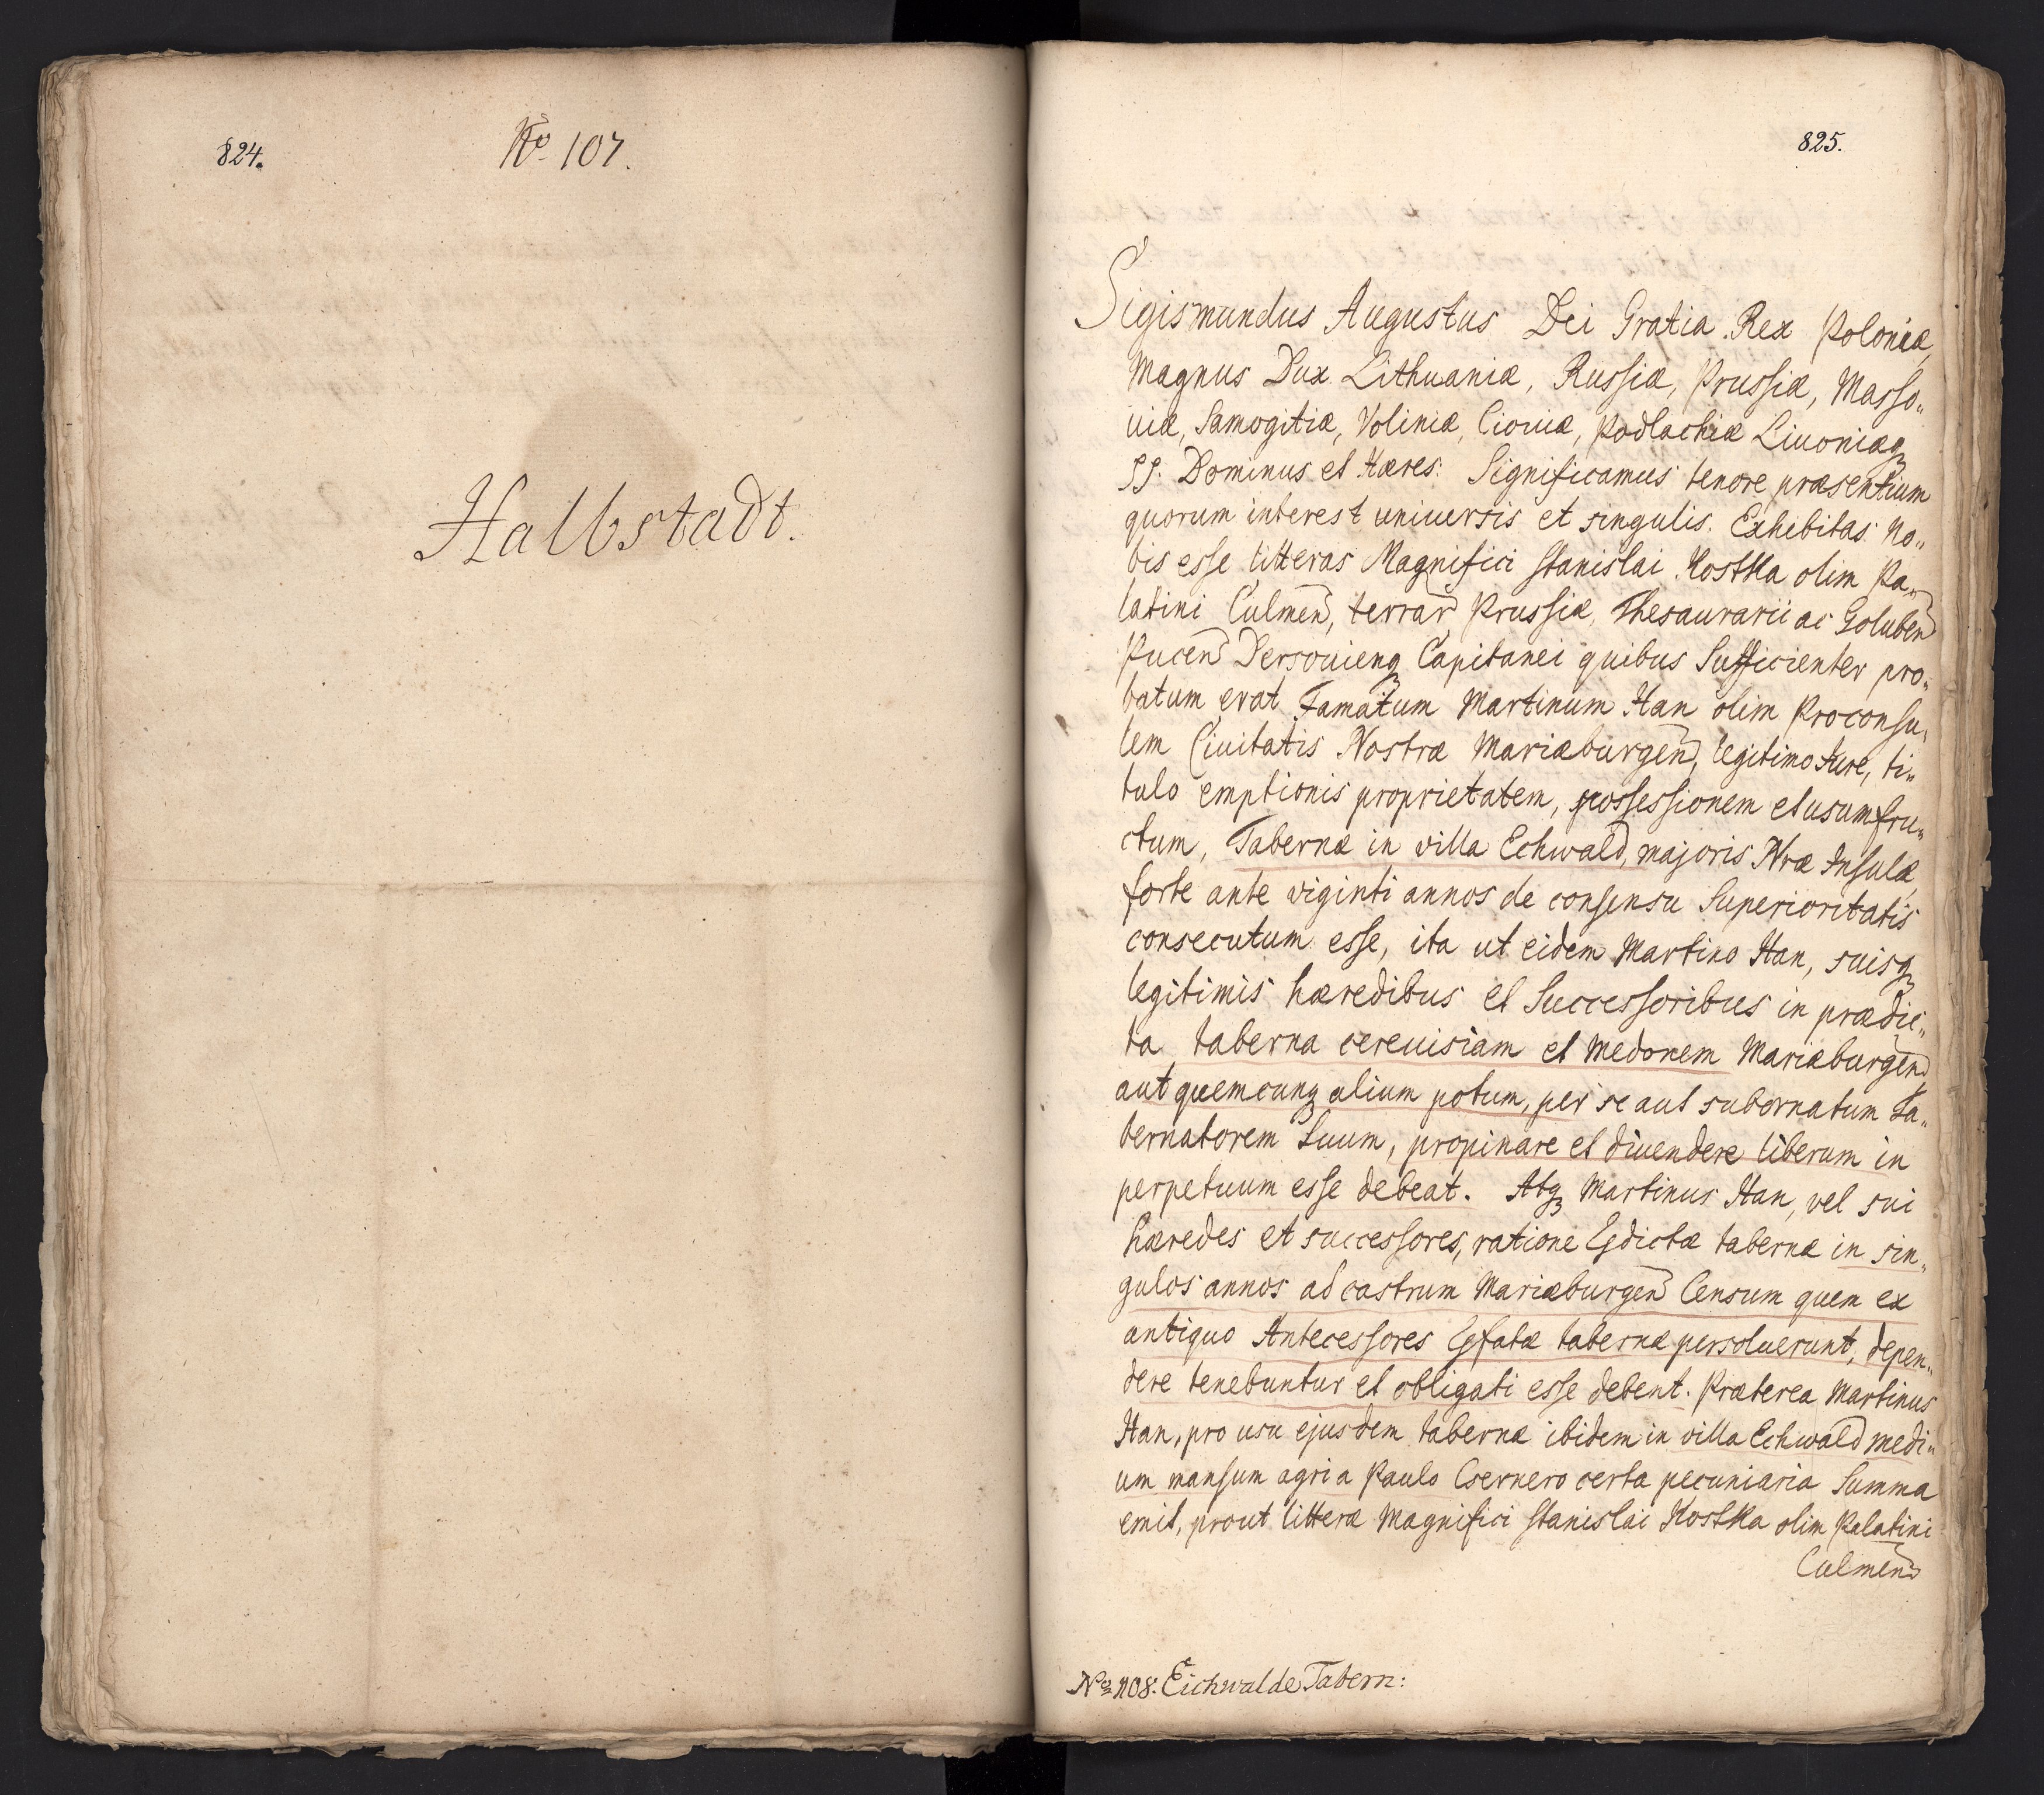 824.
No 107.
Halbstadt.
825.
Sigismundus Augustus Dei Gratia Rex Poloniæ,
Magnus Dux Lithuaniæ, Russiæ, Prussiæ, Masso„
uiæ, Samogitiæ, Voliniæ, Ciouiæ, Podlachiæ Liuoniæq
Dominus et Hæres. Significamus tenore præsentium
quorum interest uniuersis et singulis. Exhibitas no„
bis esse litteras Magnifici Stanislai Kostka olim Pa„
latini Culmen, terrar Prussiæ, Thesaurarii ac Goluben
Pucen Dersouienq Capitanei quibus Sufficienter pro„
batum erat Famatum Martinum Han olim Proconsu„
lem Ciuitatis Nostræ Mariæburgen, legitimo Iure, ti„
tulo emptionis proprietatem, possessionem et usumfru„
ctum, Tabernæ in villa Echwald, majoris Nræ Insulæ,
forte ante viginti annos de consensu Superioritatis
consecutum esse, ita ut eidem Martino Han, suisq
legitimis hæredibus et Successoribus in prædic„
ta taberna cereuisiam et Medonem Mariæburgen
aut quemcunq alium potum, per se aut subornatum ta„
bernatorem Suum, propinare et diuendere liberum in
perpetuum esse debeat. Atq Martinus Han, vel sui
hæredes et successores, ratione dictæ tabernæ in sin„
gulos annos ad castrum Mariæburgen Censum quem ex
antiquo Antecessores fatæ tabernæ persoluerunt, depen„
dere tenebuntur et obligati esse debent. Præterea Martinus
Han, pro usu ejusdem tabernæ ibidem in villa Echwald medi„
um mansum agri a Paulo Csernero certa pecuniaria Summa
emit, prout litteræ Magnifici Stanislai Kostka olim Palatini
Culmen
No 108. Eichwalde Tabern: